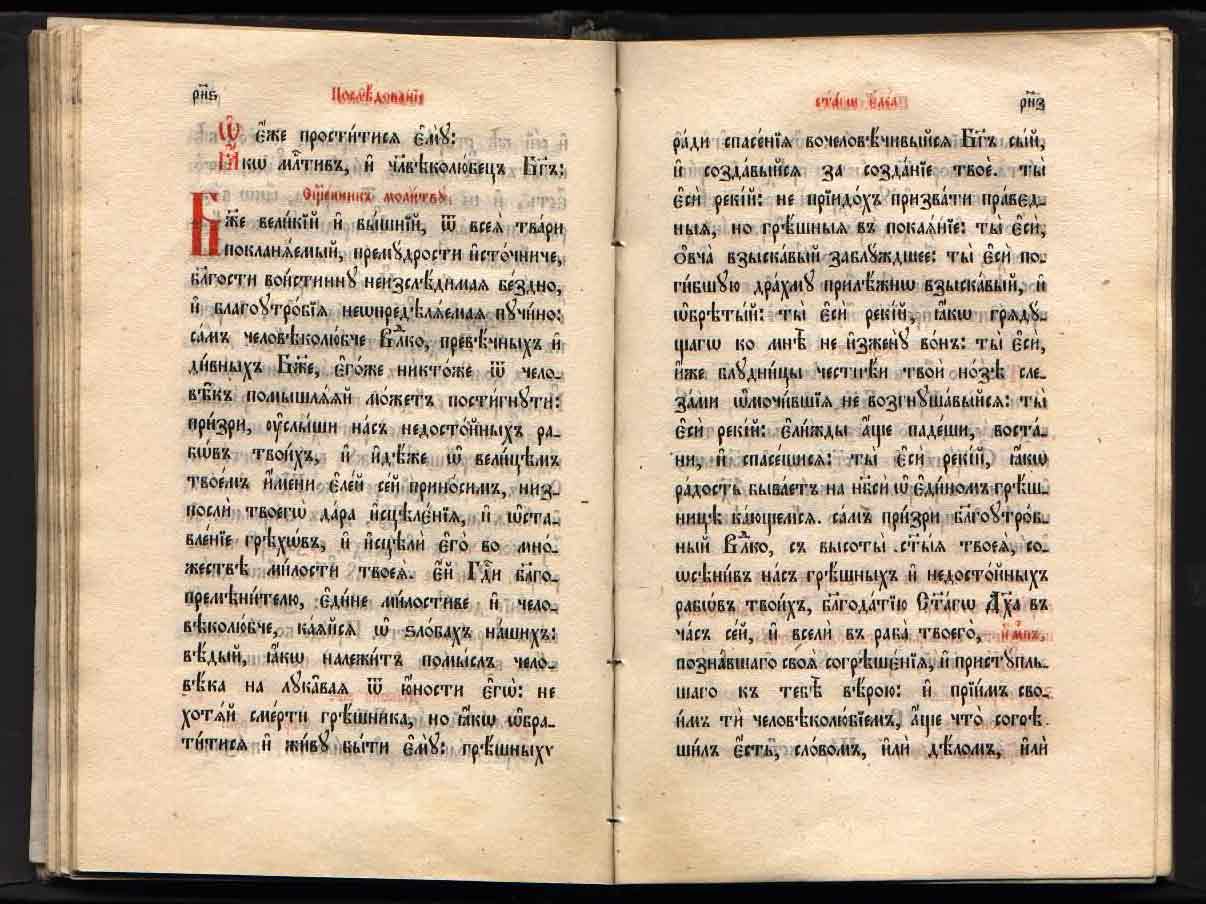 рн҃ѕ Послѣдованїе
Ѿ є҆́же прости́тисѧ є҆мꙋ̀:
Ꙗ҆́кѡ млⷭ҇тивъ, и҆ чл҃вѣколю́бецъ Бг҃ъ:
Сщ҃е́нникъ моли́твꙋ:
Бж҃е вели́кїй и҆ вы́шнїй, ѿ всеѧ̀ тва́ри
покланѧ́емый, премꙋ́дрости и҆сто́чниче,
бл҃гости вои́стиннꙋ неизслѣ́димаѧ бе́здно,
и҆ благоꙋтро́бїѧ неѡпредѣлѧ́емаѧ пꙋчи́но:
са́мъ человѣколю́бче Влⷣко, превѣ́чныхъ и҆
ди́вныхъ Бж҃е, є҆го́же никто́же ѿ чело-
вѣ̑къ помышлѧ́ѧй мо́жетъ пости́гнꙋти:
при́зри, ᲂу҆слы́ши на́съ недосто́йныхъ ра-
бѡ́въ твои́хъ, и҆ и҆дѣ́же ѡ҆ вели́цѣмъ
твое́мъ и҆́мени є҆ле́й се́й прино́симъ, низ-
послѝ твоегѡ̀ да́ра и҆сцѣле́нїѧ, и҆ ѡ҆ста-
вле́нїе грѣхѡ́въ, и҆ и҆сцѣлѝ є҆го̀ во мно́-
жествѣ ми́лости твоеѧ̀. є҆́й Гдⷭ҇и бл҃го-
премѣни́телю, є҆ди́не ми́лостиве и҆ чело-
вѣколю́бче, ка́ѧйсѧ ѡ҆ ѕло́бахъ на́шихъ:
вѣ́дый, ꙗ҆́кѡ належи́тъ по́мыслъ чело-
вѣ́ка на лꙋка̑ваѧ ѿ ю҆́ности є҆гѡ̀: не
хотѧ́й сме́рти грѣ́шника, но ꙗ҆́кѡ ѡ҆бра-
ти́тисѧ и҆ жи́вꙋ бы́ти є҆мꙋ̀: грѣ́шныхъ
ст҃а́гѡ є҆ле́а рн҃з
ра́ди спасе́нїѧ вочеловѣ́чивыйсѧ Бг҃ъ сы́й,
и҆ созда́выйсѧ за созда́нїе твоѐ. ты̀
є҆сѝ реки́й: не прїидо́хъ призва́ти пра́вед-
ныѧ, но грѣ́шныѧ въ покаѧ́нїе: ты̀ є҆сѝ,
ѻ҆вча̀ взыска́вый заблꙋ́ждшее: ты̀ є҆сѝ по-
ги́бшꙋю дра́хмꙋ прилѣ́жнѡ взыска́вый, и҆
ѡ҆брѣты́й: ты̀ є҆сѝ реки́й, ꙗ҆́кѡ грѧдꙋ́-
щагѡ ко мнѣ̀ не и҆зженꙋ̀ во́нъ: ты̀ є҆сѝ,
и҆́же блꙋдни́цы честнѣ́и твои̑ но́зѣ сле-
за́ми ѡ҆мочи́вшїѧ не возгнꙋша́выйсѧ: ты̀
є҆сѝ реки́й: є҆ли́жды а҆́ще паде́ши, воста́-
ни, и҆ спасе́шисѧ: ты̀ є҆сѝ реки́й, ꙗ҆́кѡ
ра́дость быва́етъ на нб҃сѝ ѡ҆ є҆ди́номъ грѣ́ш-
ницѣ ка́ющемсѧ. са́мъ при́зри бл҃гоꙋтро́б-
ный Влⷣко, съ высоты̀ ст҃ы́ѧ твоеѧ̀, со-
ѡсѣни́въ на́съ грѣ́шныхъ и҆ недосто́йныхъ
рабѡ́въ твои́хъ, бл҃года́тїю Ст҃а́гѡ Дх҃а въ
ча́съ се́й, и҆ всели́ въ раба̀ твоего̀, и҆́мⷬ҇къ,
позна́вшаго своѧ̑ согрѣше́нїѧ, и҆ пристꙋ́пль-
шаго къ тебѣ̀ вѣ́рою: и҆ прїи́мъ сво-
и́мъ тѝ человѣколю́бїемъ, а҆́ще что̀ согрѣ-
ши́лъ є҆́сть, сло́вомъ, и҆лѝ дѣ́ломъ, и҆лѝ